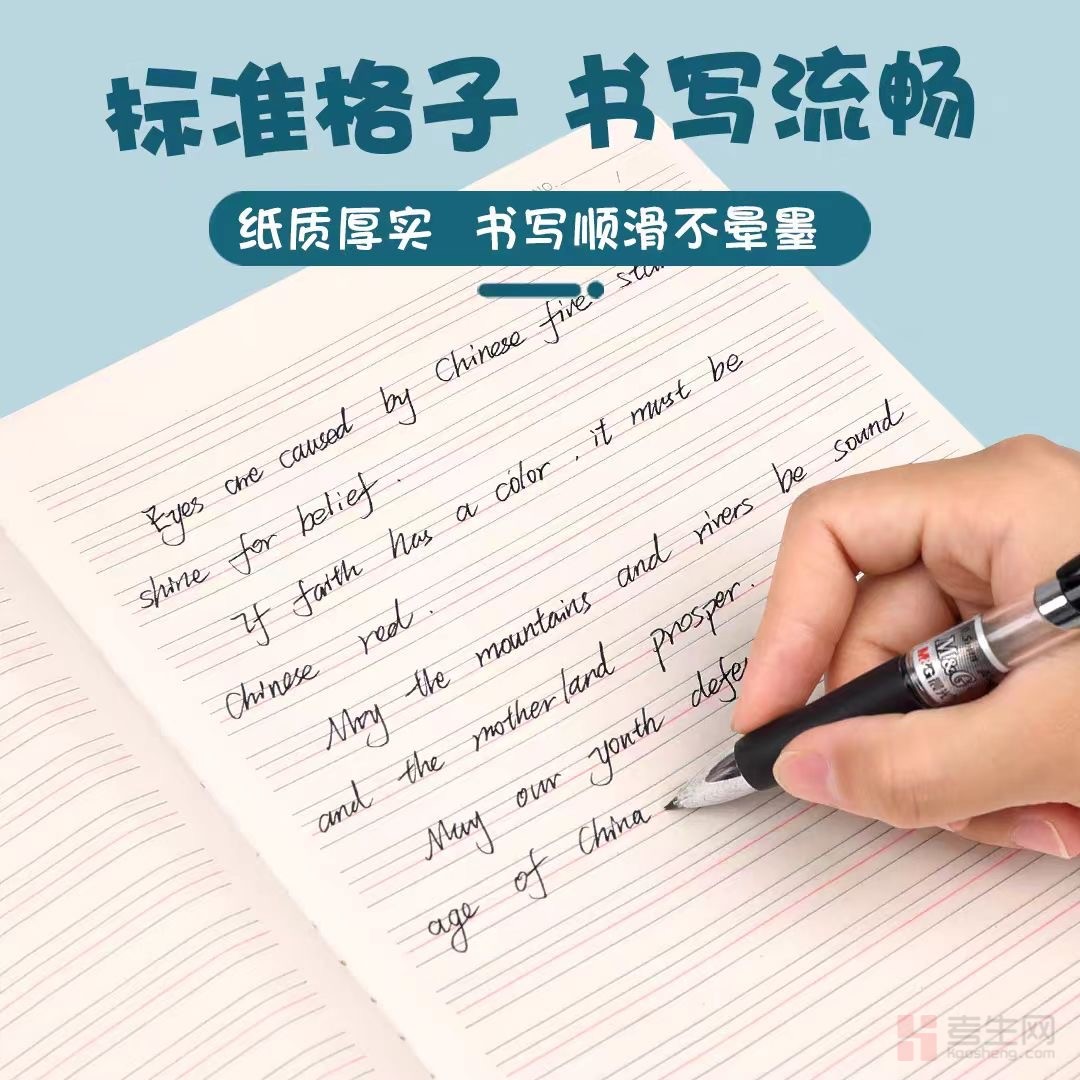 标准格子 书写流畅
纸质厚实 书写顺滑不晕墨
NO.
Eyes are caused by Chinese five
shine for belief.
If faith has a color, it must be
Chinese red.
May the mountains and rivers be sound
and the motherland prosper.
May our youth
age of China
M&G
M&G
考生网
Kaosheng.com